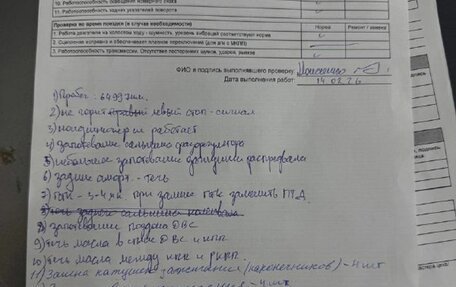 10. Работоспособность освещения номерного знака
11. Работоспособность задних указателей поворота
Проверка во время поездки (в случае необходимости) Норма Ремонт / замена
1. Работа двигателя на холостом ходу - шумность, уровень вибраций соответствуют норме
2. Сцепление исправно и обеспечивает плавное переключение (для а/м с МКПП)
3. Работоспособность трансмиссии. Отсутствие посторонних шумов, ударов, рывков
ФИО и подпись выполнявшего проверку
Дата выполнения работ: 14.02.26
1) Пробег - 64997км.
2) не горит правый левый стоп-сигнал
3) кондиционер не работает
4) запотевание сальника
5) небольшое запотевание крышки распредвала
6) задние аморт. - течь
7) ГБЦ - 3-4мм при замене ГБЦ заменить ГРД
8) течь заднего сальника коленвала
8) запотевание поддона ДВС
9) течь масла в стыке ДВС и КПП
10) течь масла между КПП и РКПП.
11) Замена катушек зажигания (наконечников) - 4шт
- 4шт